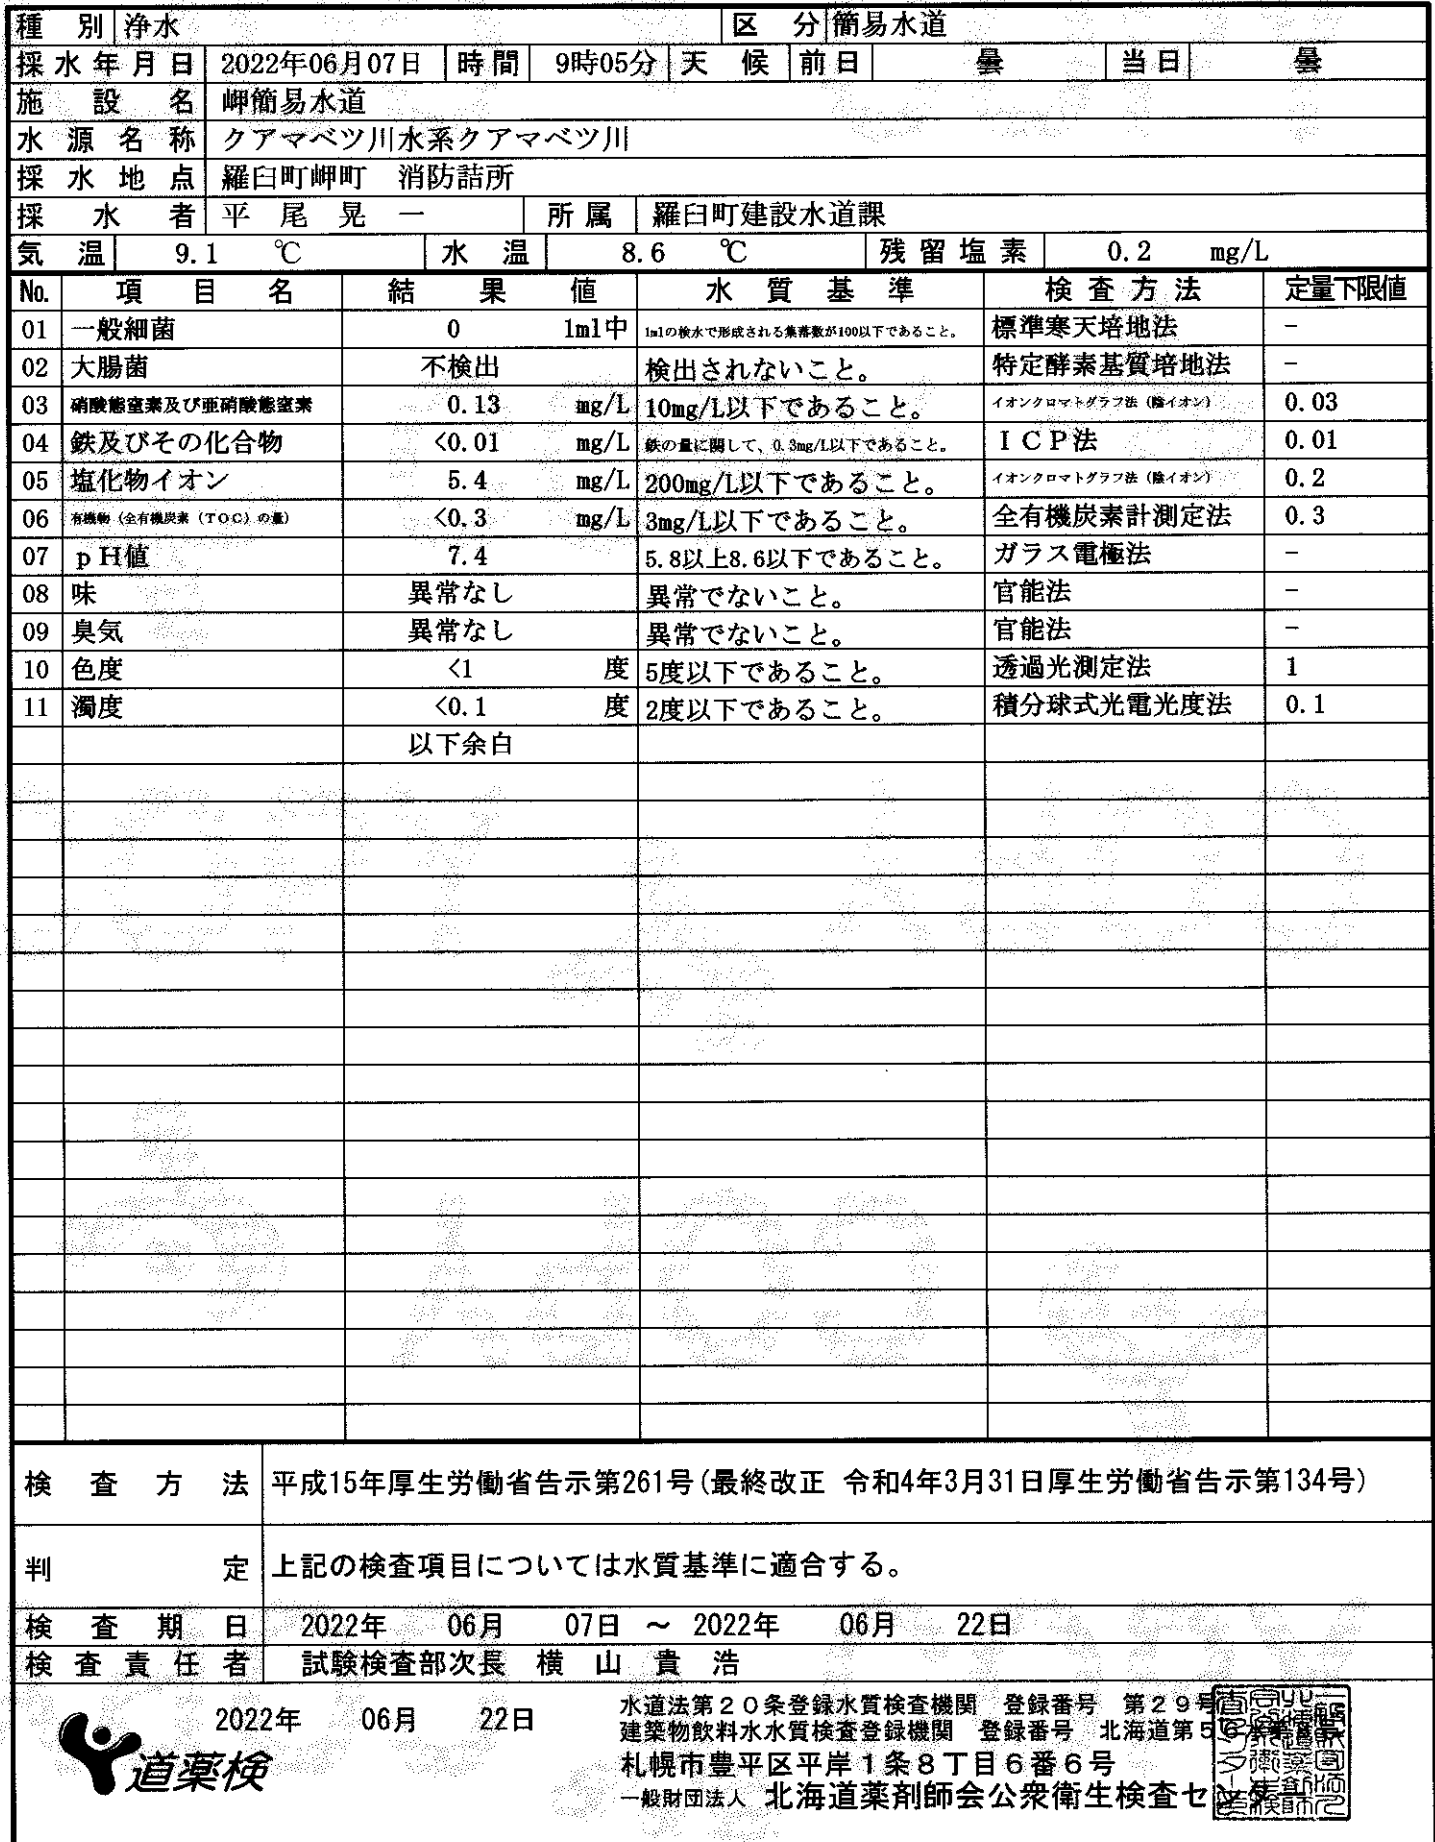 種 別 浄水 区 分 簡易水道
採水年月日 2022年06月07日 時間 9時05分 天 候 前日 曇 当日 曇
施 設 名 岬簡易水道
水 源 名 称 クアマベツ川水系クアマベツ川
採 水 地 点 羅臼町岬町 消防詰所
採 水 者 平 尾 晃 一 所属 羅臼町建設水道課
気 温 9.1 ℃ 水 温 8.6 ℃ 残留塩素 0.2 mg/L
No. 項 目 名 結 果 値 水 質 基 準 検査方法 定量下限値
01 一般細菌 0 1ml中 1mlの検水で形成される集落数が100以下であること。 標準寒天培地法 −
02 大腸菌 不検出 検出されないこと。 特定酵素基質培地法 −
03 硝酸態窒素及び亜硝酸態窒素 0.13 mg/L 10mg/L以下であること。 イオンクロマトグラフ法（陰イオン） 0.03
04 鉄及びその化合物 <0.01 mg/L 鉄の量に関して、0.3mg/L以下であること。 ＩＣＰ法 0.01
05 塩化物イオン 5.4 mg/L 200mg/L以下であること。 イオンクロマトグラフ法（陰イオン） 0.2
06 有機物（全有機炭素（TOC）の量） <0.3 mg/L 3mg/L以下であること。 全有機炭素計測定法 0.3
07 ｐＨ値 7.4 5.8以上8.6以下であること。 ガラス電極法 −
08 味 異常なし 異常でないこと。 官能法 −
09 臭気 異常なし 異常でないこと。 官能法 −
10 色度 <1 度 5度以下であること。 透過光測定法 1
11 濁度 <0.1 度 2度以下であること。 積分球式光電光度法 0.1
以下余白
検 査 方 法 平成15年厚生労働省告示第261号(最終改正 令和4年3月31日厚生労働省告示第134号)
判 定 上記の検査項目については水質基準に適合する。
検 査 期 日 2022年 06月 07日 ～ 2022年 06月 22日
検 査 責 任 者 試験検査部次長 横 山 貴 浩
2022年 06月 22日
道薬検
水道法第２０条登録水質検査機関 登録番号 第２９号
建築物飲料水水質検査登録機関 登録番号 北海道第５
札幌市豊平区平岸１条８丁目６番６号
一般財団法人 北海道薬剤師会公衆衛生検査センター